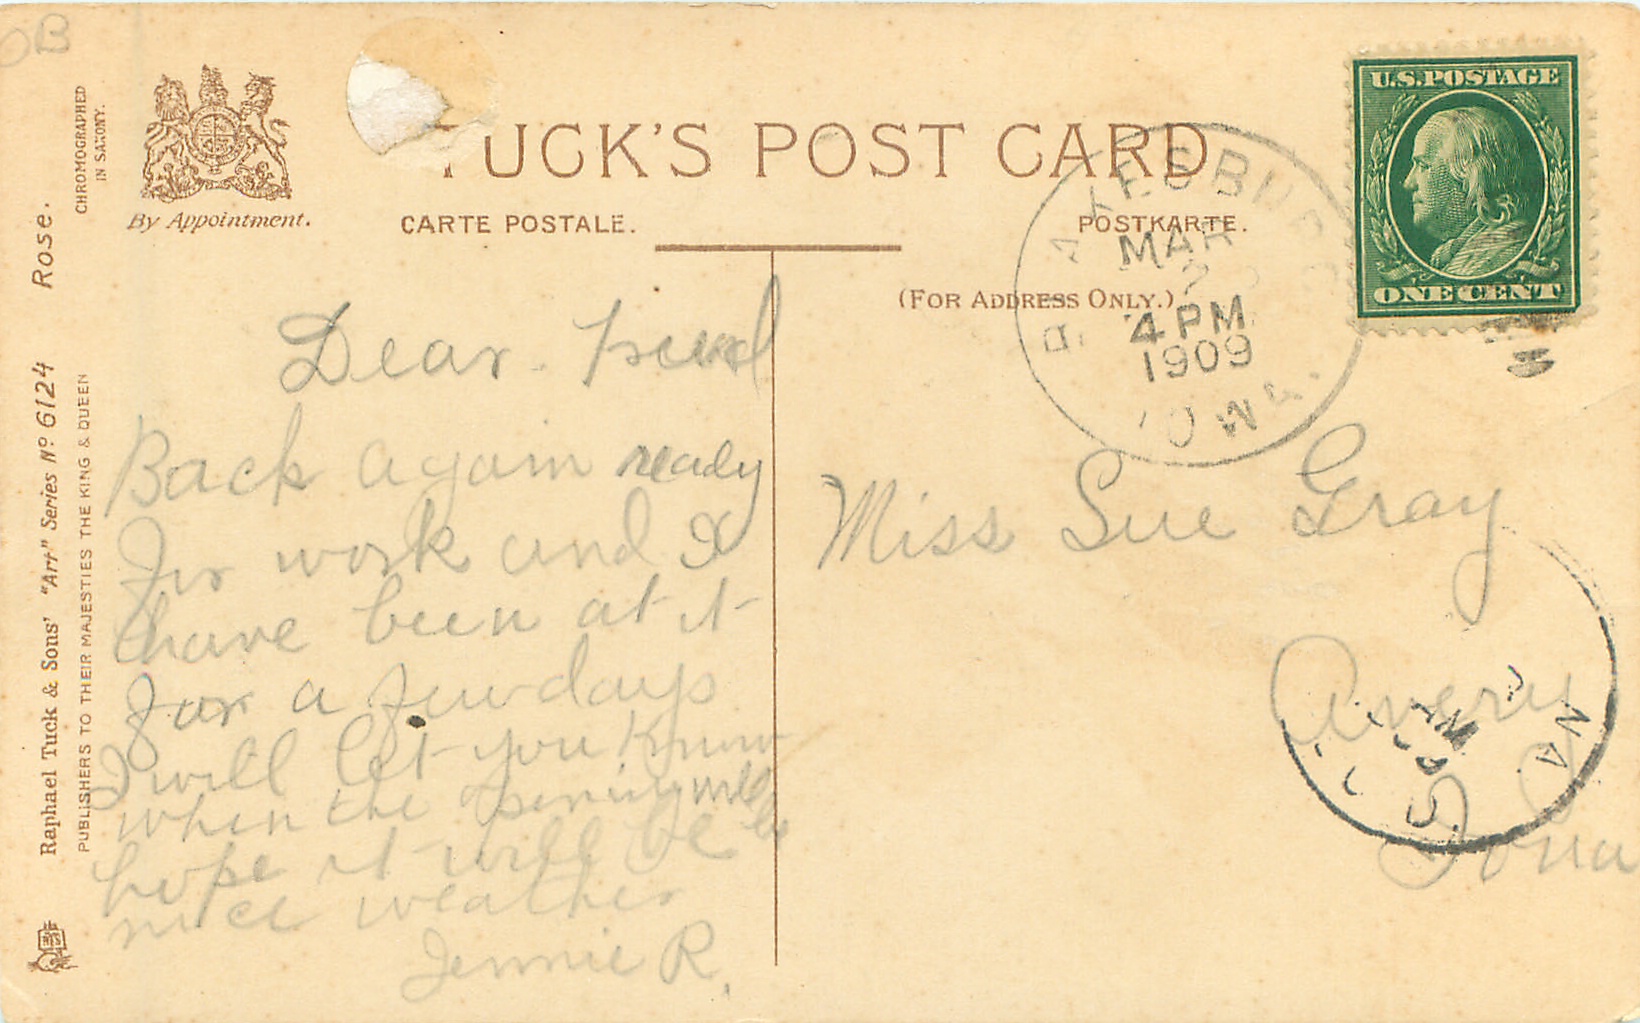 OB
CHROMOGRAPHED
IN SAXONY.
By Appointment.
TUCK'S POST CARD
CARTE POSTALE.
POSTKARTE.
(FOR ADDRESS ONLY.)
U.S. POSTAGE
ONE CENT
BLAKESBURG
MAR
4 PM
1909
IOWA.
Raphael Tuck & Sons' "Art" Series No 6124 Rose.
PUBLISHERS TO THEIR MAJESTIES THE KING & QUEEN
Dear Friend
Back again ready
for work and I
have been at it
for a few days
I will let you know
when the opening will be
hope it will be
nice weather
Jennie R.
Miss Sue Gray
Avery
Iowa